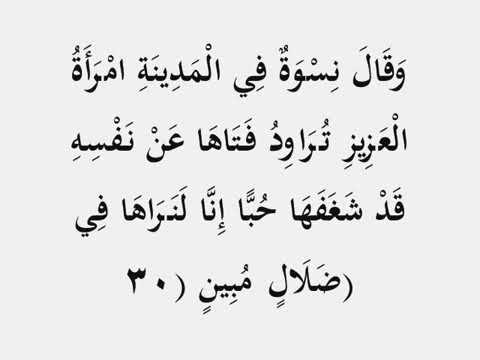 وَقَالَ نِسْوَةٌ فِي الْمَدِينَةِ امْرَأَةُ
الْعَزِيزِ تُرَاوِدُ فَتَاهَا عَنْ نَفْسِهِ
قَدْ شَغَفَهَا حُبًّا إِنَّا لَنَرَاهَا فِي
(ضَلَالٍ مُبِينٍ (٣٠